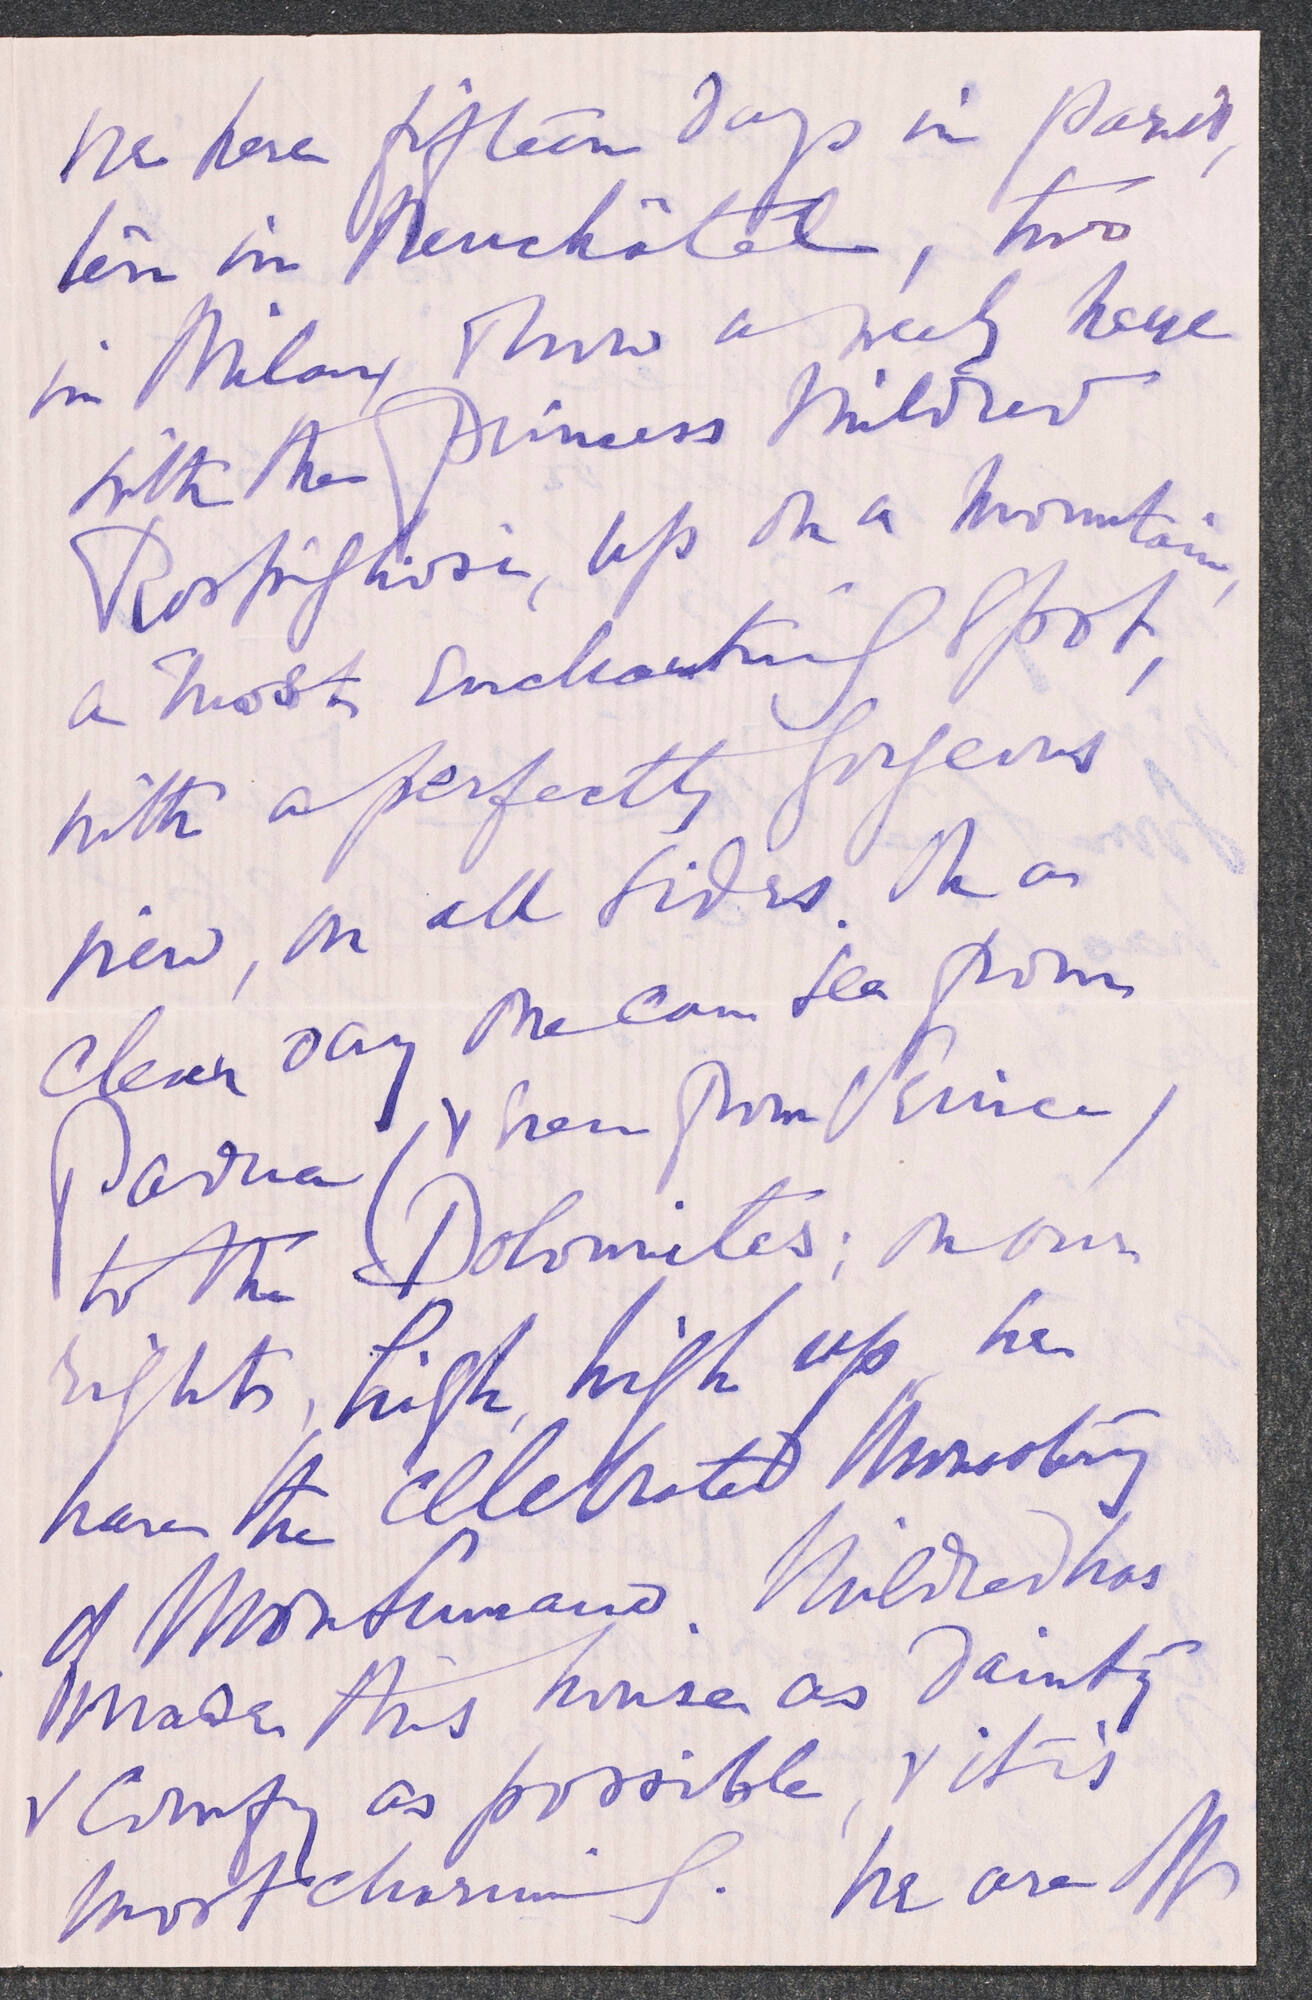 We were fifteen days in Paris,
ten in Neuchâtel, two
in Milan, & now a week here
with the Princess Mildred
Rospigliosi, up on a mountain,
a most enchanting spot,
with a perfectly gorgeous
view, on all sides. On a
clear day one can see from
Padua (& even from Venice)
to the Dolomites; on our
right, high, high up, we
have the celebrated Monastery
of Mon Summano. Mildred has
made this house as dainty
& comfy as possible, & it is
most charming. We are off